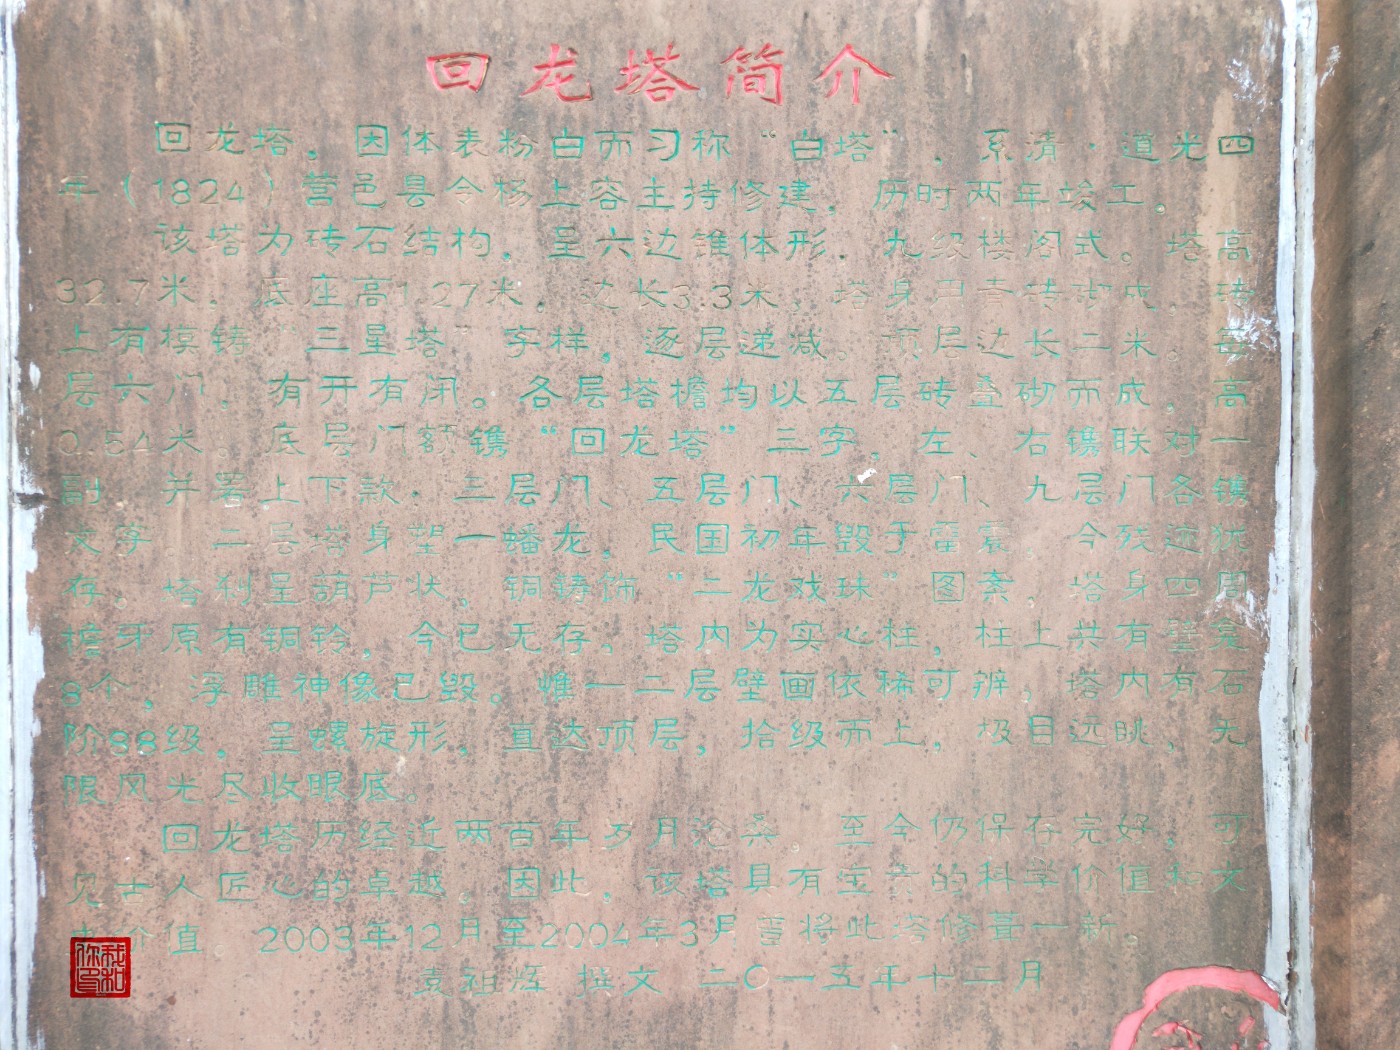 回龙塔简介
回龙塔，因体表粉白而习称“白塔”，系清·道光四
年（1824）营邑县令杨上容主持修建，历时两年竣工。
该塔为砖石结构，呈六边锥体形，九级楼阁式。塔高
32.7米，底座高1.27米，边长3.3米，塔身用青砖砌成，砖
上有模铸“三星塔”字样。逐层递减。顶层边长二米。每
层六门，有开有闭。各层塔檐均以五层砖叠砌而成，高
0.54米。底层门额镌“回龙塔”三字，左、右镌联对一
副 并署上下款；三层门、五层门、六层门、九层门各镌
文字。二层塔身塑一蟠龙，民国初年毁于雷震，今残迹犹
存。塔刹呈葫芦状，铜铸饰“二龙戏珠”图案，塔身四周
檐牙原有铜铃，今已无存，塔内为实心柱，柱上共有壁龛
8个，浮雕神像已毁。惟一二层壁画依稀可辨，塔内有石
阶88级，呈螺旋形，直达顶层，拾级而上，极目远眺，无
限风光尽收眼底。
回龙塔历经近两百年岁月沧桑 至今仍保存完好，可
见古人匠心的卓越。因此，该塔具有宝贵的科学价值和文
价值。2003年12月至2004年3月曾将此塔修葺一新。
袁祖辉 撰文 二〇一五年十二月
你我印和